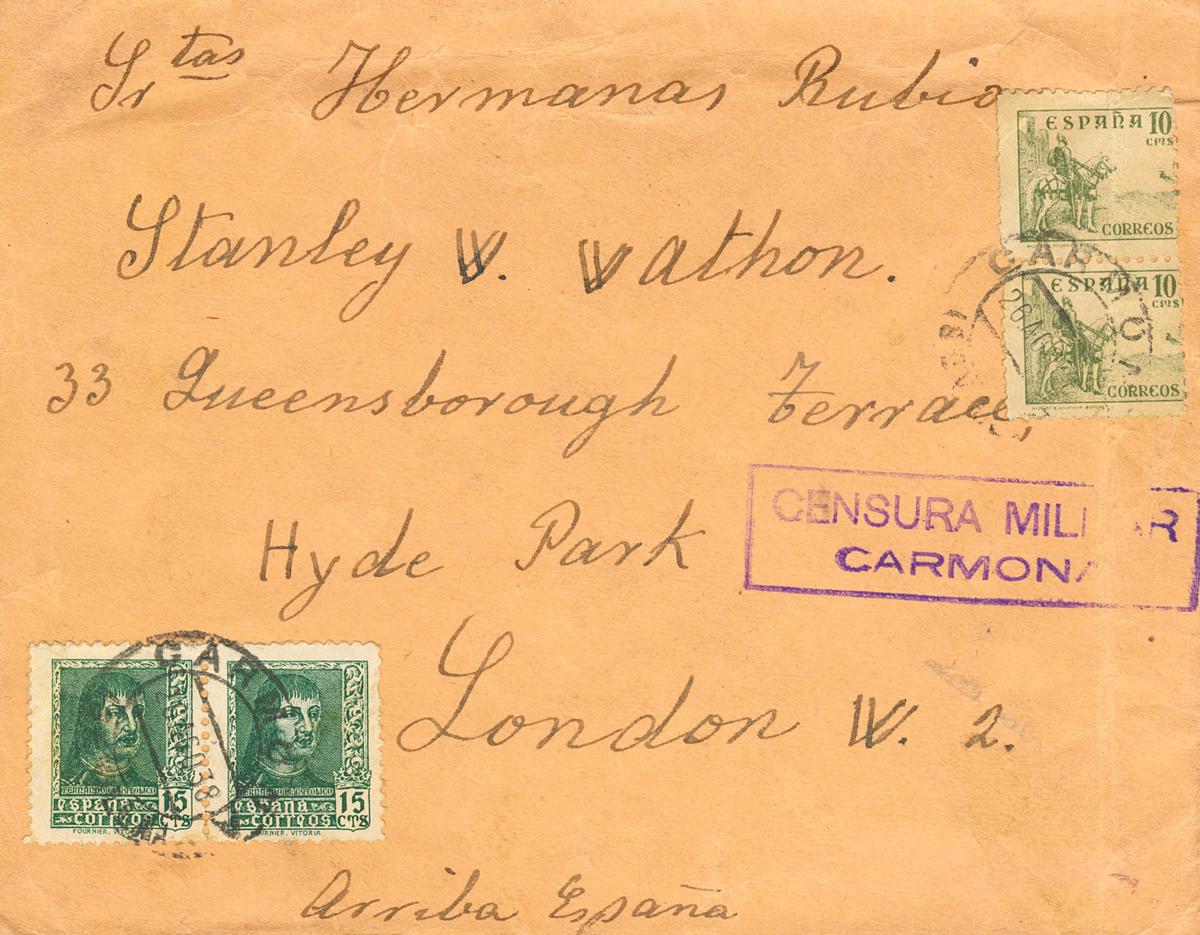 Srtas Hermanas Rubio
ESPAÑA 10
CMS
CORREOS
Stanley W. Wathon.
ESPAÑA 10
CMS
CORREOS
33 Queensborough Terrace,
CENSURA MILI AR
CARMONA
Hyde Park
London W. 2.
FERNANDO EL CATOLICO
ESPAÑA 15
CORREOS CTS
FOURNIER. VITORIA
FERNANDO EL CATOLICO
ESPAÑA 15
CORREOS CTS
FOURNIER. VITORIA
Arriba España